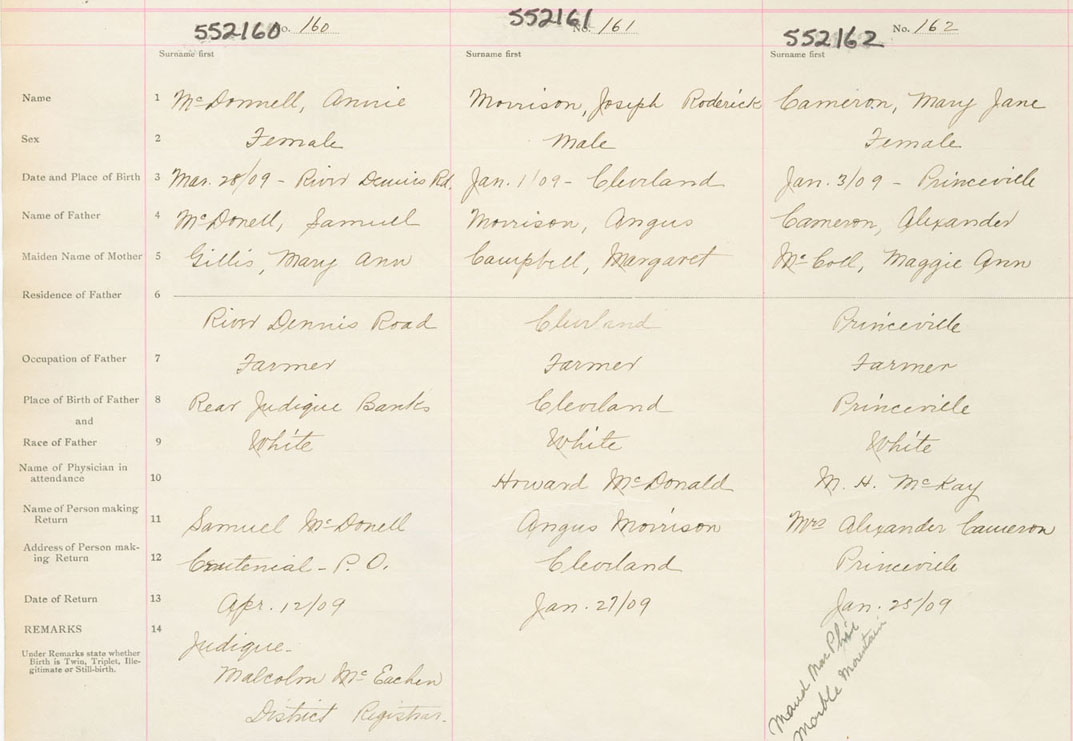 552160 No. 160 552161 No. 161 552162 No. 162
Surname first Surname first Surname first
Name 1 McDonnell, Annie Morrison, Joseph Roderick Cameron, Mary Jane
Sex 2 Female Male Female
Date and Place of Birth 3 Mar. 28/09 - River Dennis Rd. Jan. 1/09 - Cleveland Jan. 3/09 - Princeville
Name of Father 4 McDonell, Samuel Morrison, Angus Cameron, Alexander
Maiden Name of Mother 5 Gillis, Mary Ann Campbell, Margaret McColl, Maggie Ann
Residence of Father 6
River Dennis Road Cleveland Princeville
Occupation of Father 7 Farmer Farmer Farmer
Place of Birth of Father 8 Rear Judique Banks Cleveland Princeville
and
Race of Father 9 White White White
Name of Physician in
attendance 10 Howard McDonald M. H. McKay
Name of Person making
Return 11 Samuel McDonell Angus Morrison Mrs Alexander Cameron
Address of Person mak-
ing Return 12 Centenial - P.O. Cleveland Princeville
Date of Return 13 Apr. 12/09 Jan. 27/09 Jan. 25/09
REMARKS 14 Judique -
Under Remarks state whether
Birth is Twin, Triplet, Ille-
gitimate or Still-birth.
Malcolm McEachen
District Registrar.
Maud MacPhie
Marble Mountain